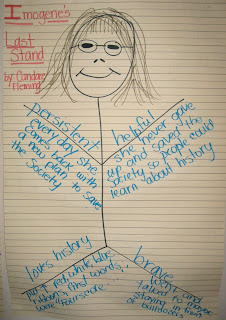 Imogene's
Last
Stand
by Candace
Fleming
persistent
every day she
comes back with
a new plan to save
the Society
helpful
she never gave
up and saved the
society so people could
learn about history
loves history
put red, white, blue
ribbon
first words
were "Fourscore...
brave
went and
talked to mayor
staying in the
building